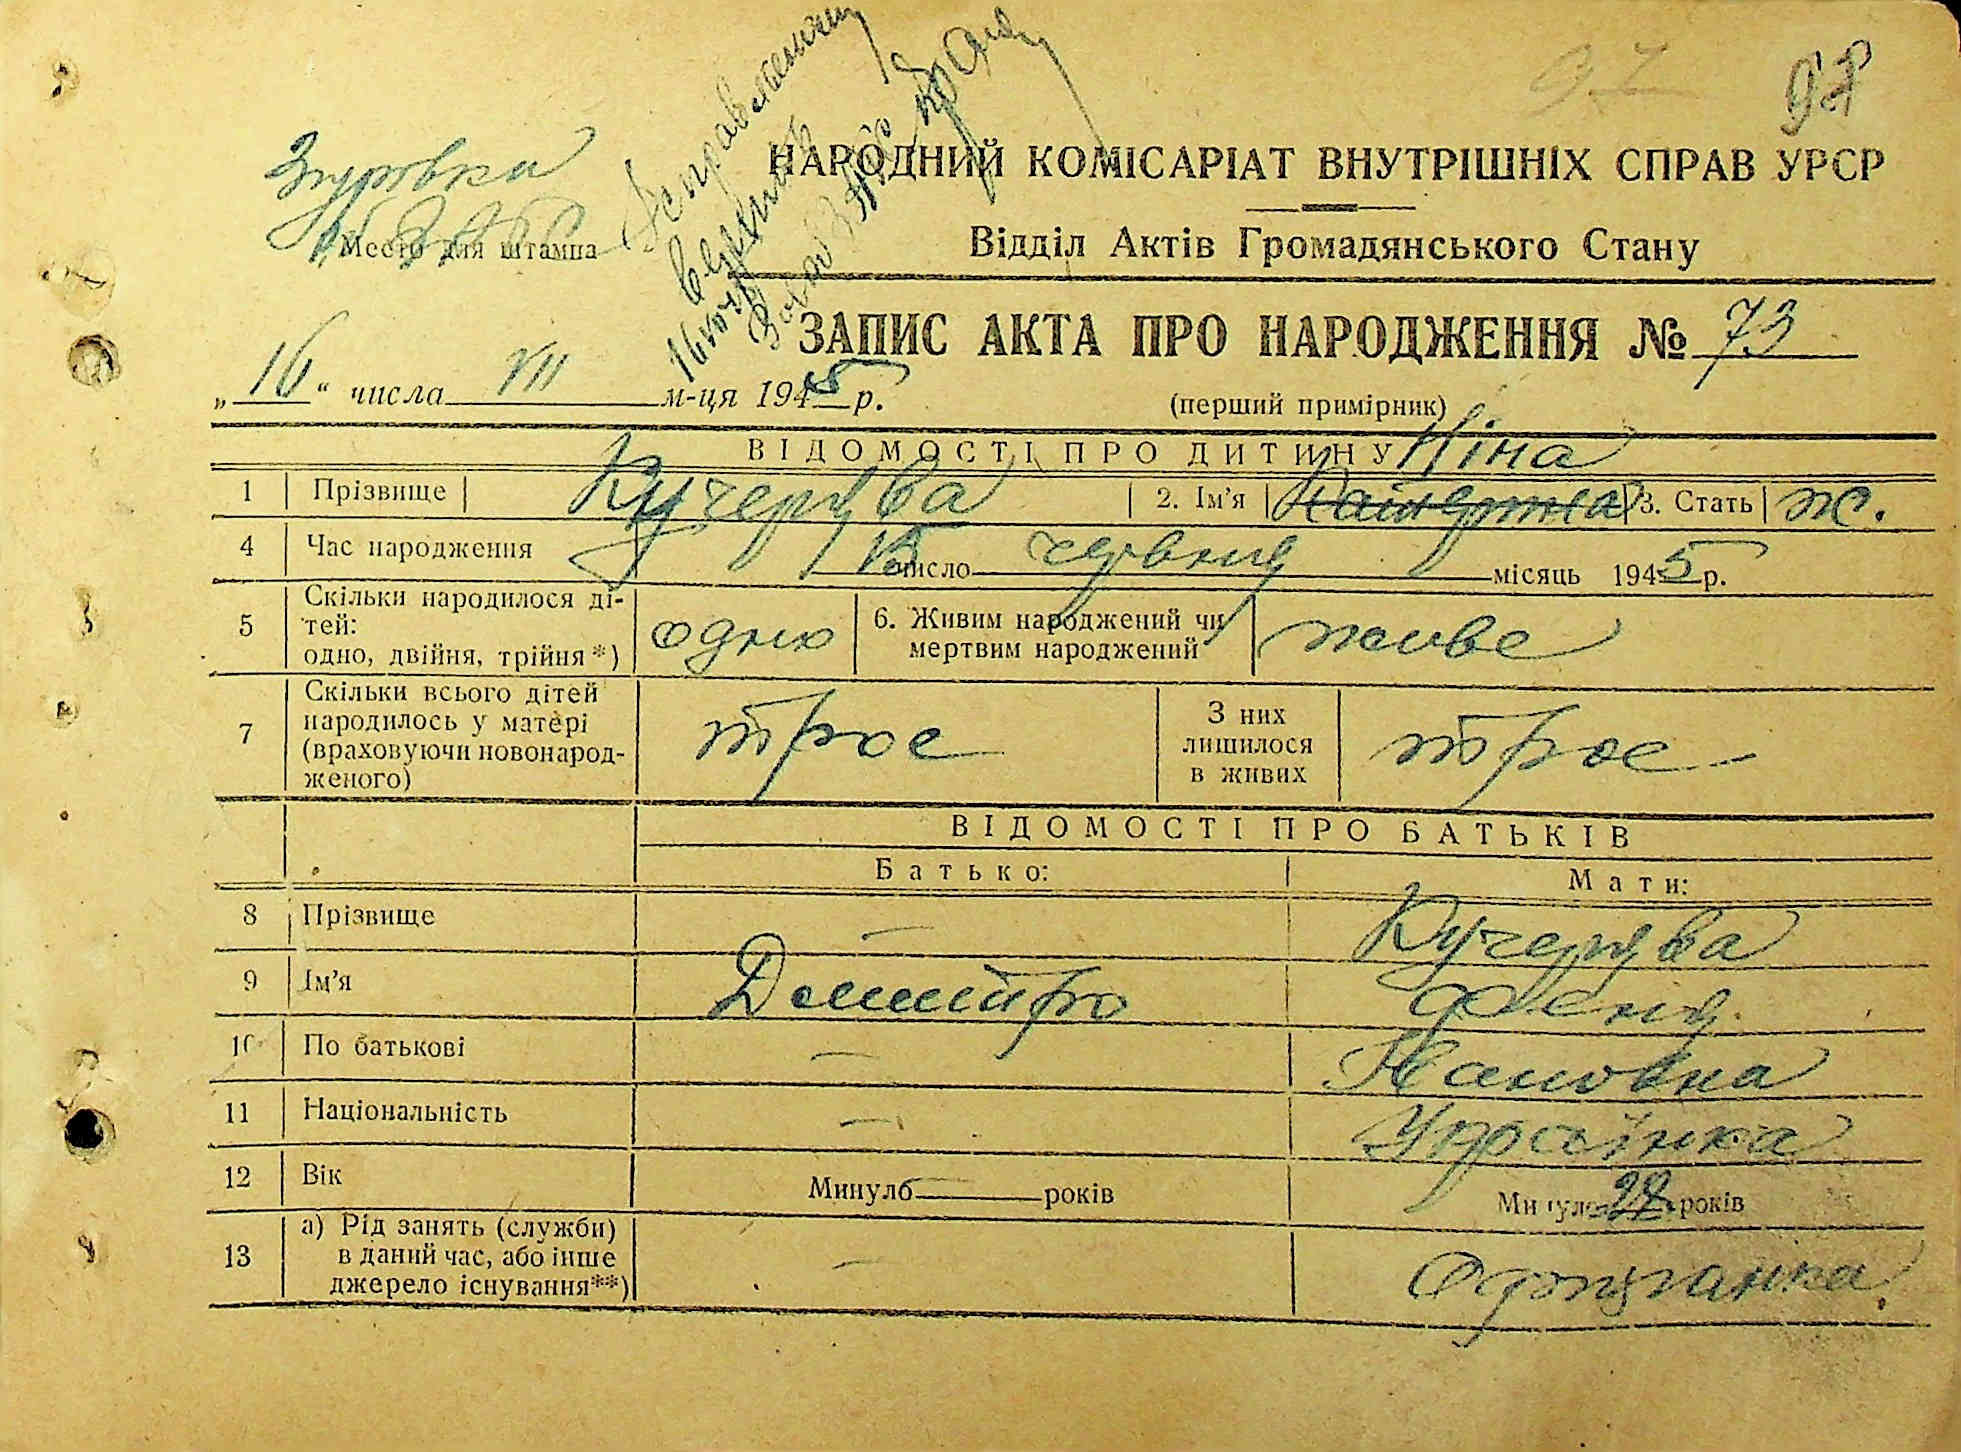 97 98
Згуровка
Место для штампа
НАРОДНИЙ КОМІСАРІАТ ВНУТРІШНІХ СПРАВ УРСР
Відділ Актів Громадянського Стану
ЗАПИС АКТА ПРО НАРОДЖЕННЯ № 73
„16“ числа VII м-ця 1945 р.
(перший примірник)
ВІДОМОСТІ ПРО ДИТИНУ Ніна
1 Прізвище Кучерява 2. Ім'я 3. Стать ж.
4 Час народження 15 число червня місяць 1945 р.
5 Скільки народилося ді-
тей:
одно, двійня, трійня*) одно 6. Живим народжений чи
мертвим народжений живе
7 Скільки всього дітей
народилось у матері
(враховуючи новонарод-
женого) троє З них
лишилося
в живих троє
ВІДОМОСТІ ПРО БАТЬКІВ
Батько: Мати:
8 Прізвище — Кучерява
9 Ім'я Дмитро Феня
10 По батькові —
11 Національність — Українка
12 Вік Минуло років Минуло 28 років
13 а) Рід занять (служби)
в даний час, або інше
джерело існування**) —